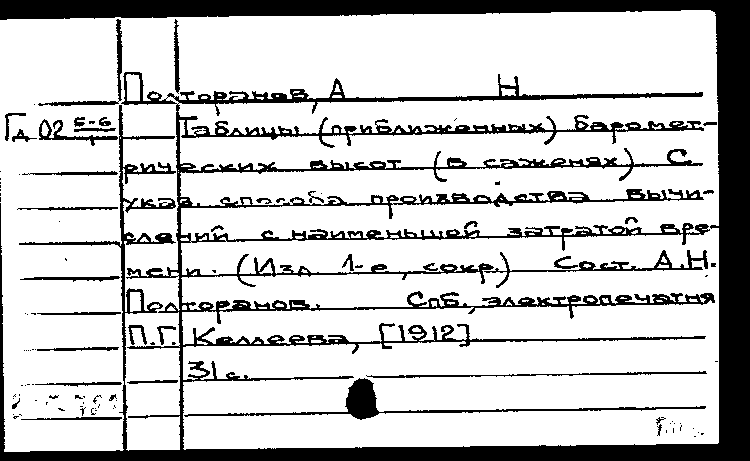 Полторанов, А Н.
Гд 02 5-6/1 Таблицы (приближенных) баромет-
рических высот (в саженях) С
указ. способа производства вычи-
слений с наименьшей затратой вре-
мени. (Изд 1-е, сокр.) Сост. А.Н.
Полторанов. Спб., электропечатня
П.Г. Келлеева, [1912]
31 с.